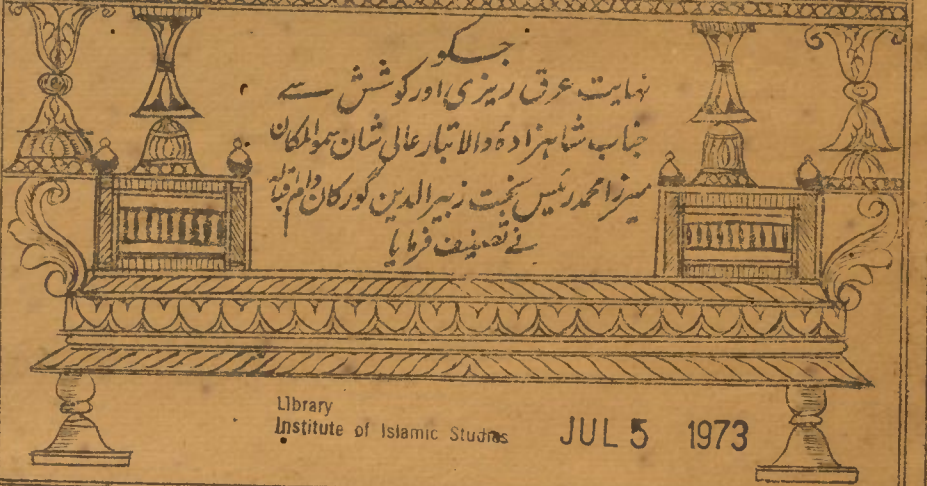 جسکو
نہایت عرق ریزی اور کوشش سے
جناب شاہزادۂ والا تبار عالی شان سموالمکان
میرزا محمد رئیس بخت زبیر الدین گورگان دام اقبالہ
نے تصنیف فرمایا
Library
Institute of Islamic Studies
JUL 5 1973